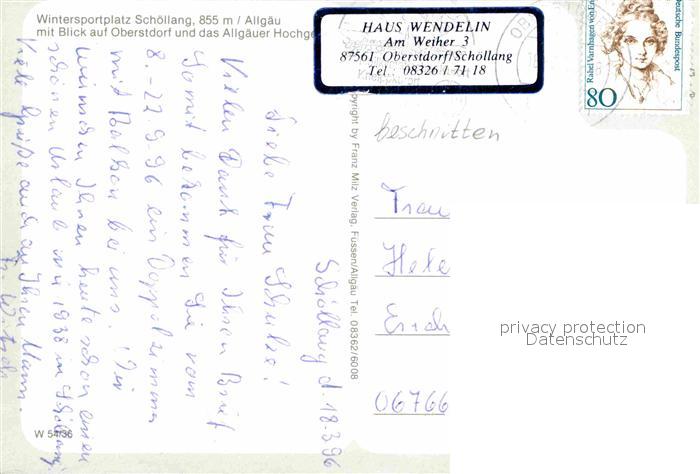 Wintersportplatz Schöllang, 855 m / Allgäu
mit Blick auf Oberstdorf und das Allgäuer Hochge
HAUS WENDELIN
Am Weiher 3
87561 Oberstdorf/Schöllang
Tel.: 08326 / 71 18
Deutsche Bundespost
Rahel Varnhagen von Ense
80
beschnitten
Schöllang d. 18.3.96
Liebe Frau Schulze!
Vielen Dank für Ihren Brief.
Somit bekommen Sie vom
8.-22.9.96 ein Doppelzimmer
mit Balkon bei uns. Wir
wünschen Ihnen heute schon einen
schönen Urlaub in Schöllang.
Viele Grüße auch an Ihren Mann.
opyright by Franz Milz Verlag, Füssen/Allgäu Tel. 08362/6008
Frau
Hele
Erich
06766
privacy protection
Datenschutz
W 54/36